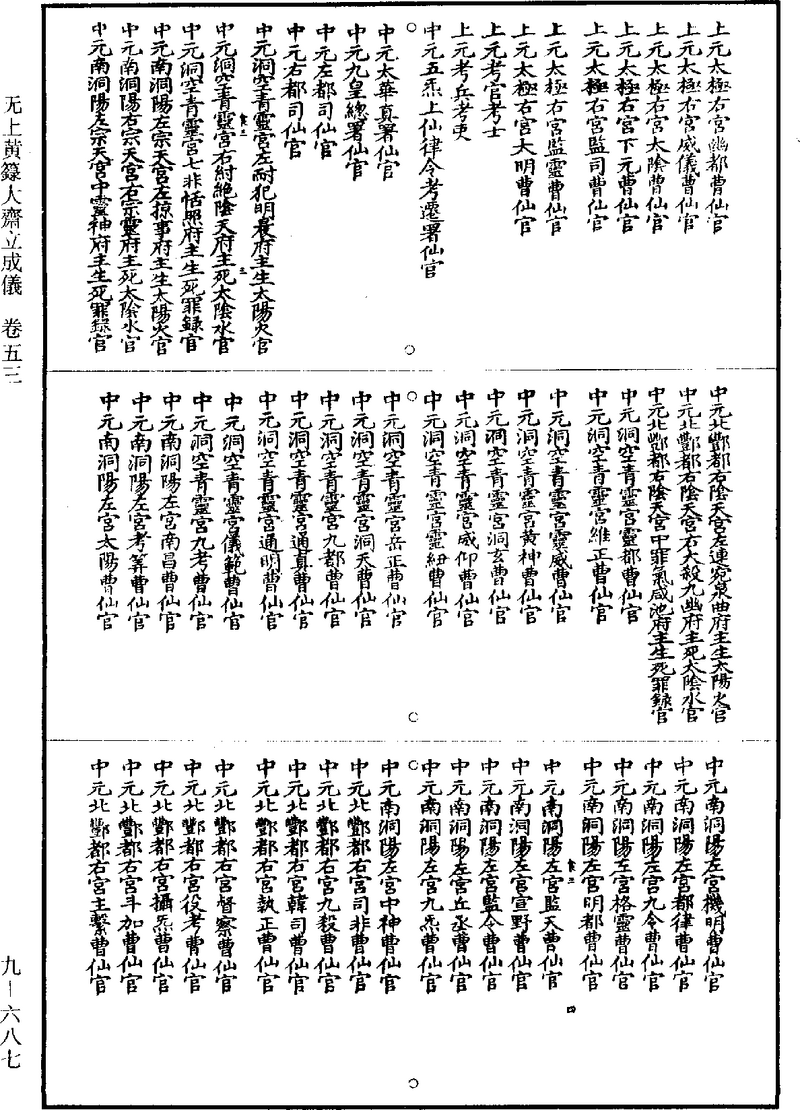 上元太極右宮幽都曹仙官
上元太極右宮威儀曹仙官
上元太極右宮太陰曹仙官
上元太極右宮下元曹仙官
上元太極右宮監司曹仙官
上元太極右宮監靈曹仙官
上元太極右宮大明曹仙官
上元考官考士
上元考兵考吏
中元五炁上仙律令考遷署仙官
中元太華真署仙官
中元九皇總署仙官
中元左都司仙官
中元右都司仙官
中元洞空青靈宮左耐犯明晨府主生太陽火官
中元洞空青靈宮右紂絶陰天府主死太陰水官
中元洞空青靈宮七非恬照府主生死罪録官
中元南洞陽左宗天宮左掠事府主生太陽火官
中元南洞陽右宗天宮右宗靈府主死太陰水官
中元南洞陽左宗天宮中靈神府主生死罪録官
中元北酆都右陰天宮左連宛泉曲府主生太陽火官
中元北酆都右陰天宮右大殺九幽府主死太陰水官
中元北酆都右陰天宮中罪氣咸池府主生死罪録官
中元洞空青靈宮靈都曹仙官
中元洞空青靈宮維正曹仙官
中元洞空青靈宮靈威曹仙官
中元洞空青靈宮黄神曹仙官
中元洞空青靈宮洞玄曹仙官
中元洞空青靈宮威仰曹仙官
中元洞空青靈宮靈紐曹仙官
中元洞空青靈宮岳正曹仙官
中元洞空青靈宮洞天曹仙官
中元洞空青靈宮九都曹仙官
中元洞空青靈宮通真曹仙官
中元洞空青靈宮通明曹仙官
中元洞空青靈宮儀範曹仙官
中元洞空青靈宮九考曹仙官
中元南洞陽左宮南昌曹仙官
中元南洞陽左宮考筭曹仙官
中元南洞陽左宮太陽曹仙官
中元南洞陽左宮機明曹仙官
中元南洞陽左宮都律曹仙官
中元南洞陽左宮九令曹仙官
中元南洞陽左宮格靈曹仙官
中元南洞陽左宮明都曹仙官
中元南洞陽左宮監天曹仙官
中元南洞陽左宮宣野曹仙官
中元南洞陽左宮監令曹仙官
中元南洞陽左宮丘丞曹仙官
中元南洞陽左宮九炁曹仙官
中元南洞陽左宮中神曹仙官
中元北酆都右宮司非曹仙官
中元北酆都右宮九殺曹仙官
中元北酆都右宮韓司曹仙官
中元北酆都右宮執正曹仙官
中元北酆都右宮督察曹仙官
中元北酆都右宮役考曹仙官
中元北酆都右宮攝炁曹仙官
中元北酆都右宮斗加曹仙官
中元北酆都右宮主繫曹仙官
无上黄籙大齋立成儀 卷五三
九—六八七